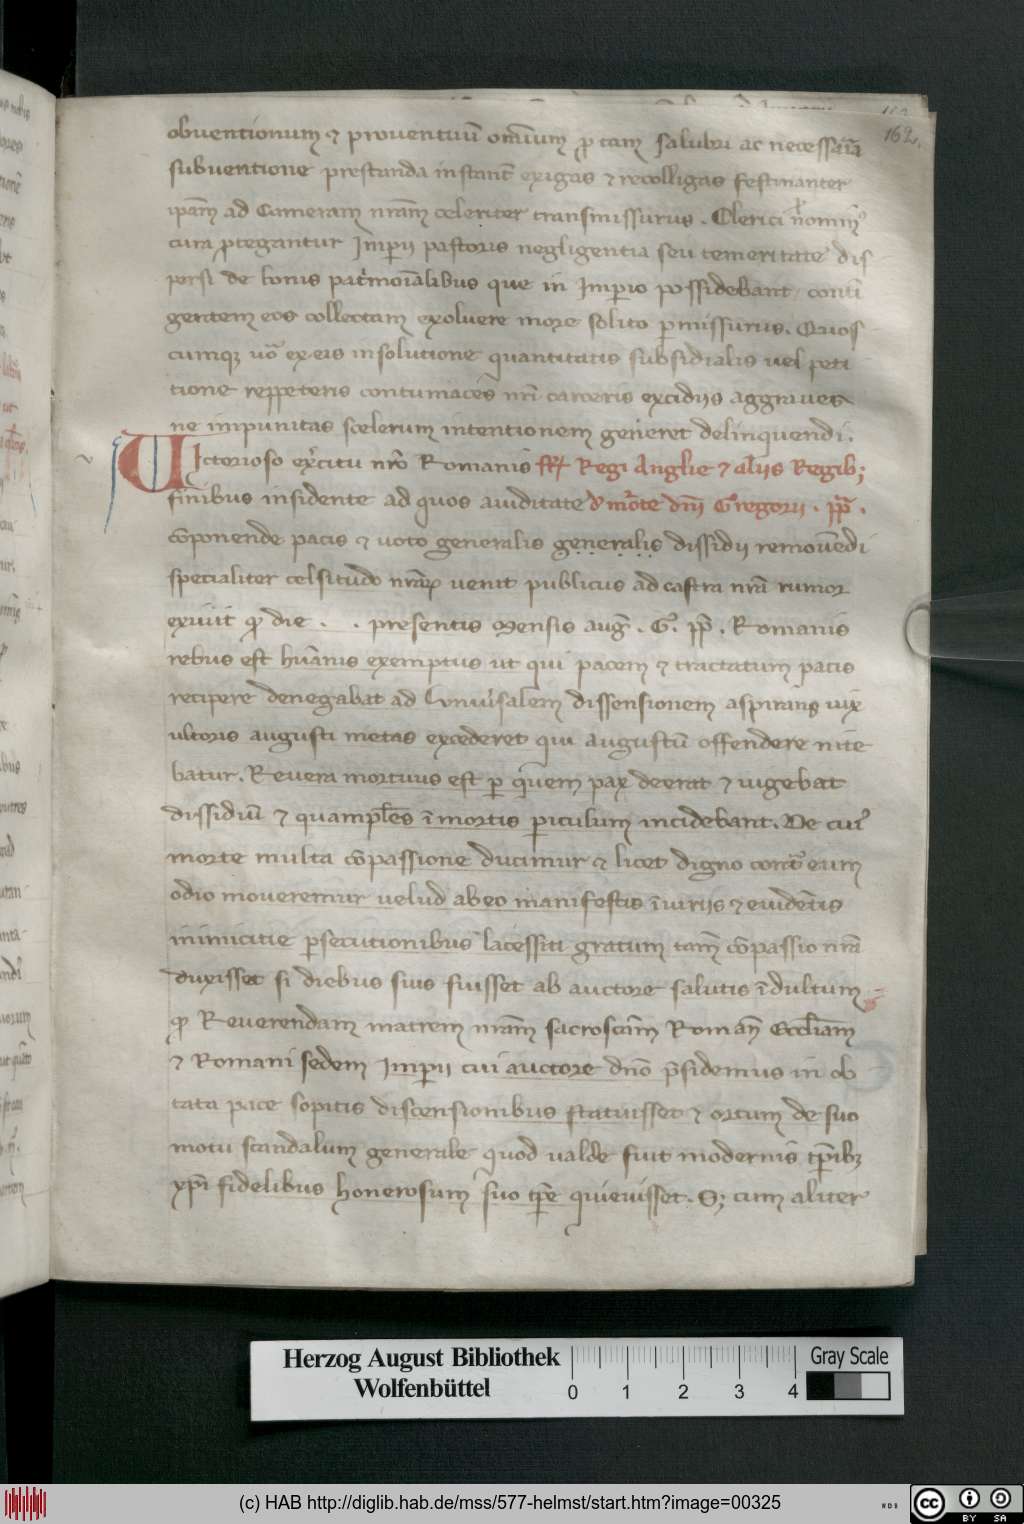 162.
obventionum ⁊ proventuū om̄ium ꝓ tam salubri ac necessaria
subventione prestanda instant̄ exigas ⁊ recolligas festinanter
ip̄am ad Cameram nr̄am celeriter transmissurus . Clerici
cura ꝓtegantur Imꝑii pastoris negligentia seu temeritate dis
persi de bonis patⁱmoīalibus que in Imꝑio possidebant
gentem eos collectam exolvere more solito ꝑmissurus. Quos
cumqꝫ uō ex eis in solutione quantitatis subsidialis vel peti
tione reppeteris contumaces nr̄i carceris excidiis aggraves
ne impunitas scelerum intentionem generet delinquendi.
Victorioso ex̄citu nr̄o Romanis ffꝝ Regi Anglie ⁊ aliis Regibꝫ
finibus insidente ad quos aviditate d̄ morte dn̄i Gregorii . pp̄ .
cōponende pacis ⁊ voto generalis generalis dissidii removēdi
specialiter celsitudo venit publicus ad castra nr̄a rumor
exivit ꝙ die . . presentis Mensis auḡ . G. pp̄ . Romanis
rebus est hūanis exemptus ut qui pacem ⁊ tractatum pacis
recipere denegabat ad Universalem dissensionem aspirans vix
ultoris augusti metas excederet qui augustū offendere nite
batur. Revera mortuus est ꝑ quem pax deerat ⁊ vigebat
dissidiū ⁊ quampl̄es ī mortis ꝑiculum incidebant. De cuiꝰ
morte multa cōpassione ducimur ⁊ licet digno contᵃ eum
odio moveremur velud ab eo manifestis īiuriis ⁊ evidētis
inimicitie ꝑsecutionibus lacessiti gratum tam̄ cōpassio nr̄a
duxisset si diebus suis fuisset ab auctore salutis īdultum
ꝙ Reverendam matrem nr̄am sacrosc̄am Roman̄ Eccl̄iam
⁊ Romani sedem Imꝑii cui auctore dn̄o p̄sidemus in ob
tata pace sopitis discensionibus statuisset ⁊ ortum de suo
motu scandalum generale quod valde fuit modernis tꝑibꝫ
xp̄i fidelibus honerosum suo tꝑe quievisset. Sꝫ cum aliter
Herzog August Bibliothek
Wolfenbüttel
0 1 2 3 4
Gray Scale
(c) HAB http://diglib.hab.de/mss/577-helmst/start.htm?image=00325
WDB
cc BY SA